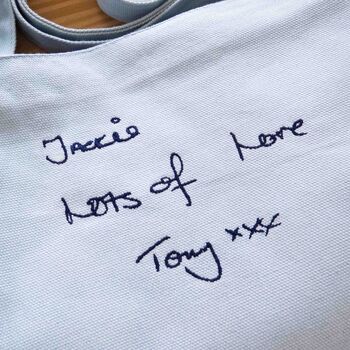 Jackie
Lots of Love
Tony xxx